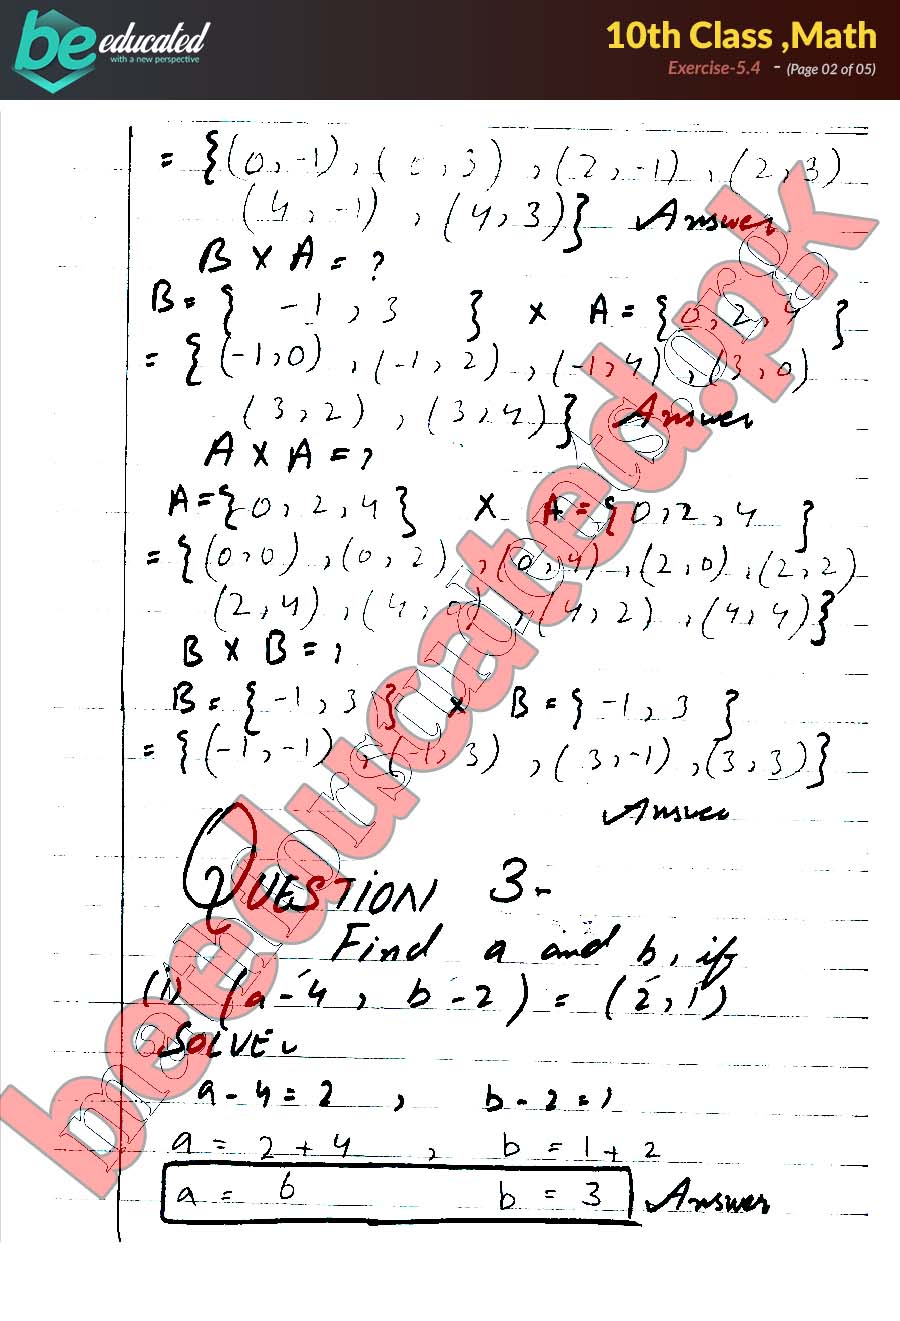 be educated
with a new perspective
10th Class ,Math
Exercise-5.4 - (Page 02 of 05)
= {(0,-1), (0,3), (2,-1), (2,3)
(4,-1), (4,3)} Answer
B X A = ?
B = { -1, 3 } X A = {0,2,4}
= {(-1,0), (-1,2), (-1,4), (3,0)
(3,2), (3,4)} Answer
A X A = ?
A = {0,2,4} X A = {0,2,4}
= {(0,0), (0,2), (0,4), (2,0), (2,2)
(2,4), (4,0), (4,2), (4,4)}
B X B = ?
B = {-1,3} X B = {-1,3}
= {(-1,-1), (-1,3), (3,-1), (3,3)}
Answer
QUESTION 3-
Find a and b, if
(i) (a-4, b-2) = (2,1)
SOLVE
a-4=2 , b-2=1
a = 2+4 , b = 1+2
a = 6 b = 3 Answer
beeducated.pk